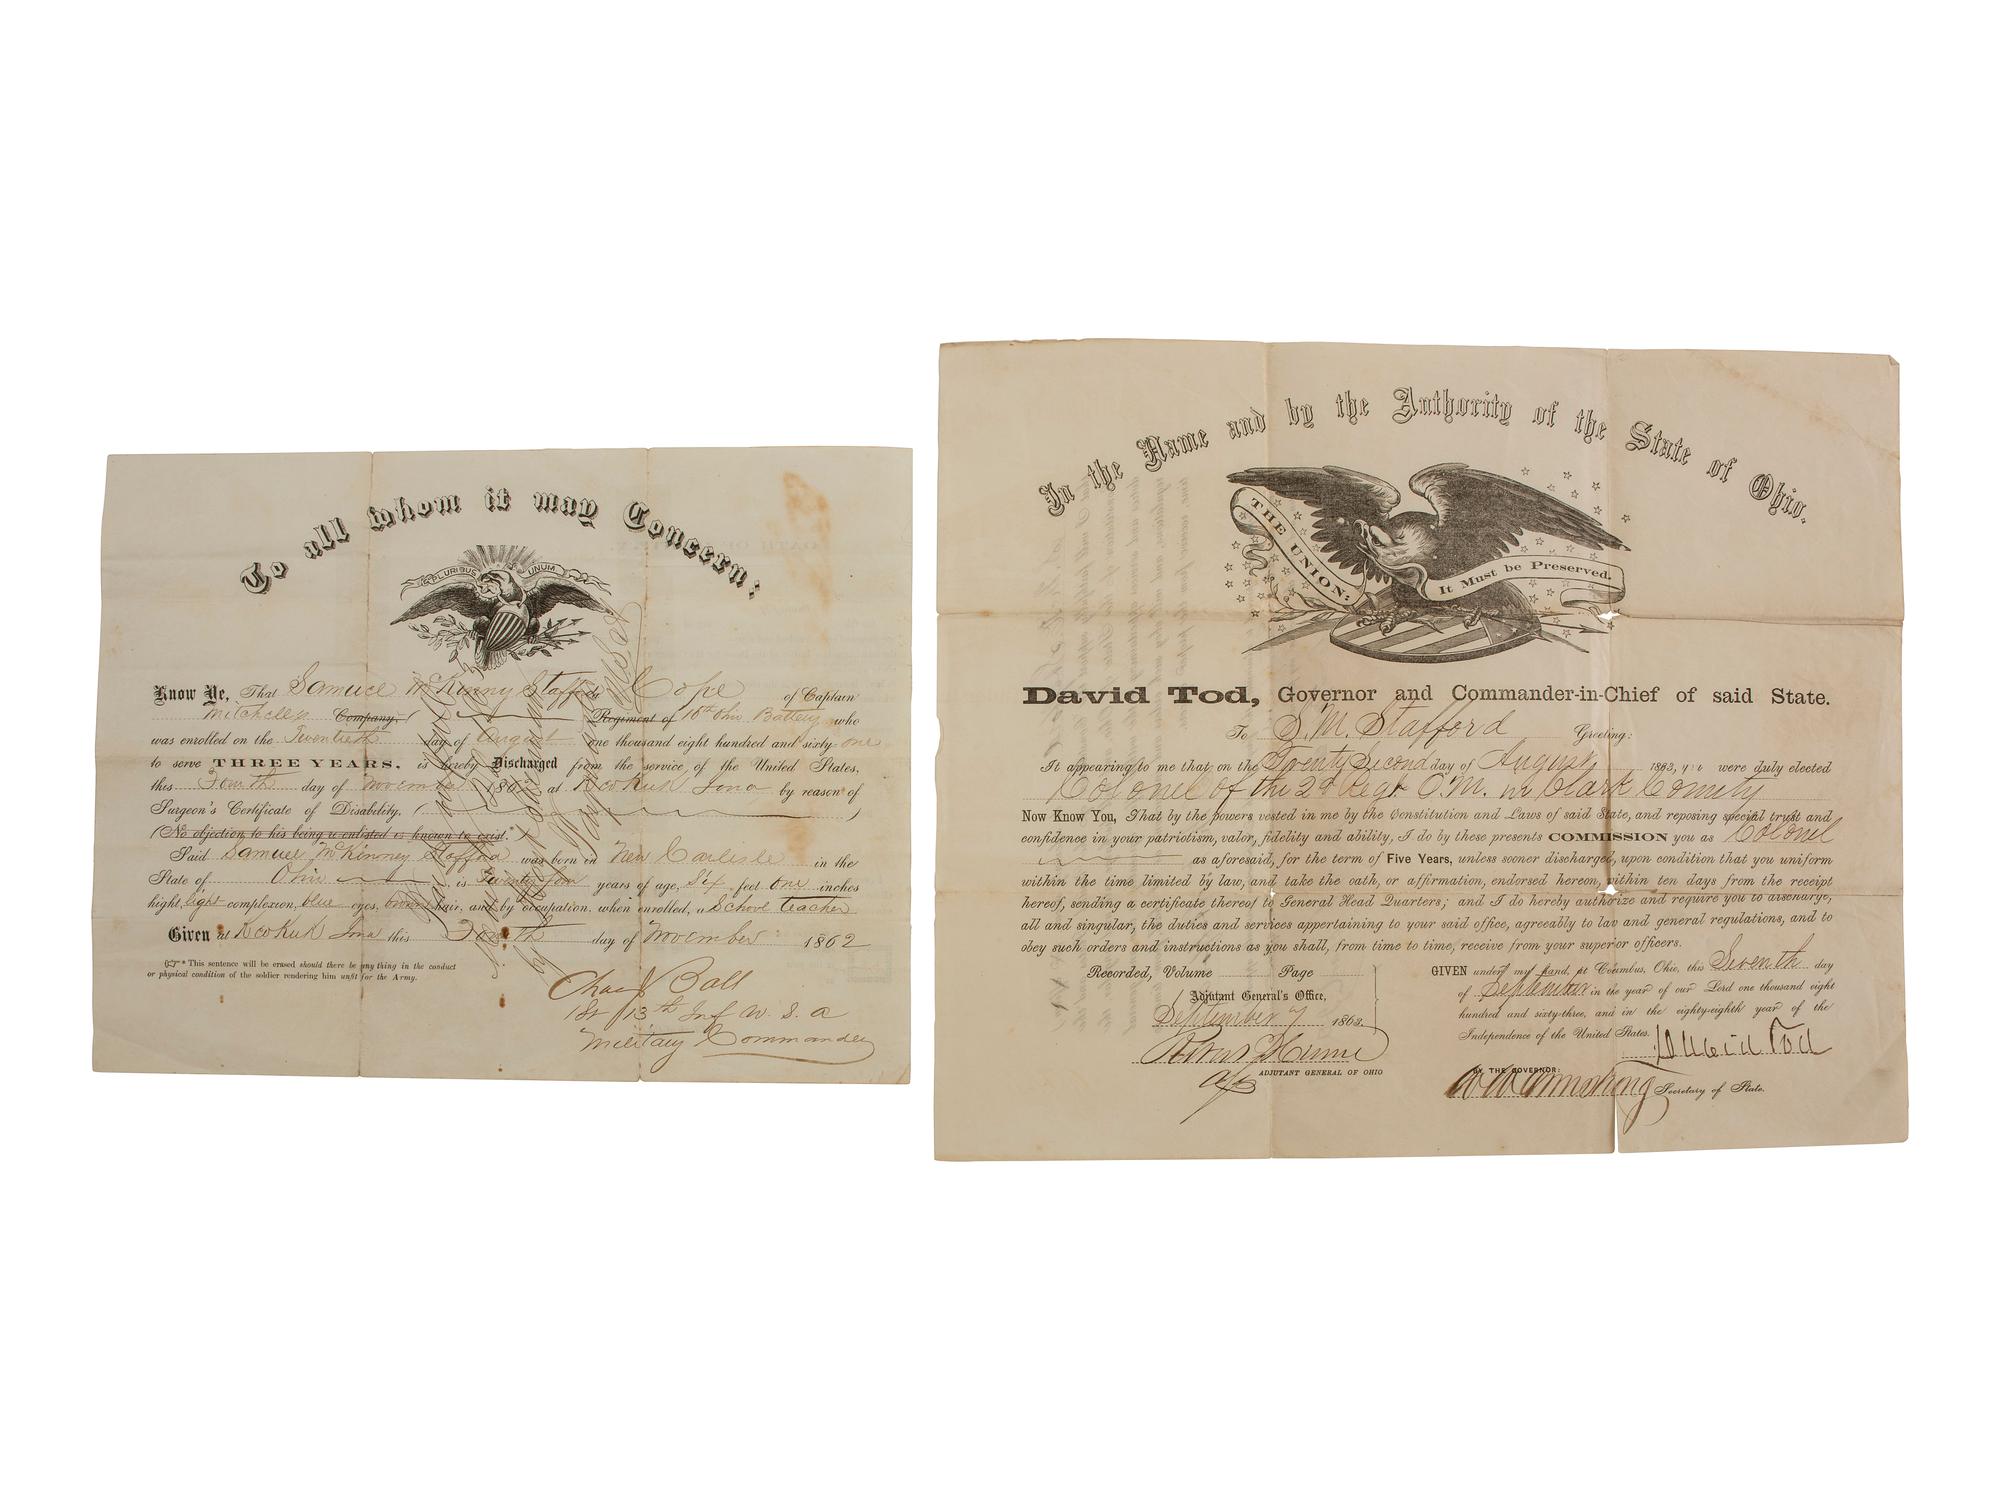 To all whom it may Concern:
E PLURIBUS UNUM
Know Ye, That Samuel McKinny Stafford of Captain
Mitchells Company, ( ) Regiment of 10th Ohio Battery who
was enrolled on the Twentieth day of August one thousand eight hundred and sixty-one
to serve THREE YEARS, is hereby Discharged from the service of the United States,
this Fourth day of November 1862 at Keokuk Iowa by reason of
Surgeon's Certificate of Disability, ( )
(No objection to his being reenlisted is known to exist.*)
Said Samuel McKinney Stafford was born in New Carlisle in the
State of Ohio is Twenty four years of age, Six feet one inches
hight, light complexion, blue eyes, brown hair, and by occupation, when enrolled, a School teacher
Given at Keokuk Iowa this Fourth day of November 1862
* This sentence will be erased should there be anything in the conduct
or physical condition of the soldier rendering him unfit for the Army.
Chas J Ball
13th Inf U. S. A
Military Commander
In the Name and by the Authority of the State of Ohio.
THE UNION:
It Must be Preserved.
David Tod, Governor and Commander-in-Chief of said State.
To S. M. Stafford Greeting:
It appearing to me that on the Twenty Second day of August 1863, you were duly elected
Colonel of the 2d Regt O.M. in Clark County
Now Know You, That by the powers vested in me by the Constitution and Laws of said State, and reposing special trust and
confidence in your patriotism, valor, fidelity and ability, I do by these presents COMMISSION you as Colonel
as aforesaid, for the term of Five Years, unless sooner discharged, upon condition that you uniform
within the time limited by law, and take the oath, or affirmation, endorsed hereon, within ten days from the receipt
hereof, sending a certificate thereof to General Head Quarters; and I do hereby authorize and require you to discharge,
all and singular, the duties and services appertaining to your said office, agreeably to law and general regulations, and to
obey such orders and instructions as you shall, from time to time, receive from your superior officers.
Recorded, Volume Page
Adjutant General's Office,
September 7 1863.
ADJUTANT GENERAL OF OHIO
GIVEN under my hand, at Columbus, Ohio, this Seventh day
of September in the year of our Lord one thousand eight
hundred and sixty-three, and in the eighty-eighth year of the
Independence of the United States.
David Tod
BY THE GOVERNOR:
W W Armstrong Secretary of State.